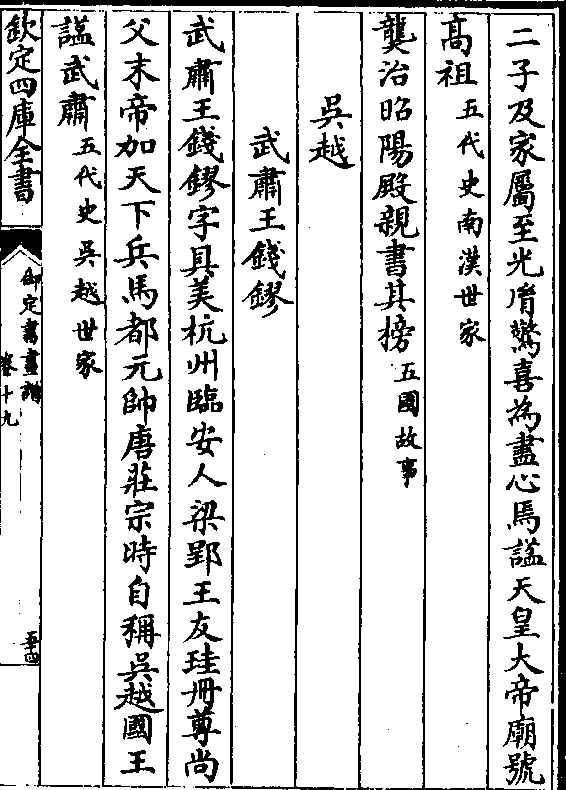 二子及家屬至光胤驚喜為盡心焉諡天皇大帝廟號
髙祖五代史南漢世家
龔治昭陽殿親書其榜五國故事
吳越
武肅王錢鏐
武肅王錢鏐字具美杭州臨安人梁郢王友珪冊尊尚
父末帝加天下兵馬都元帥唐莊宗時自稱吳越國王
諡武肅五代史吳越世家
欽定四庫全書
御定書畫譜
卷十九
五十四